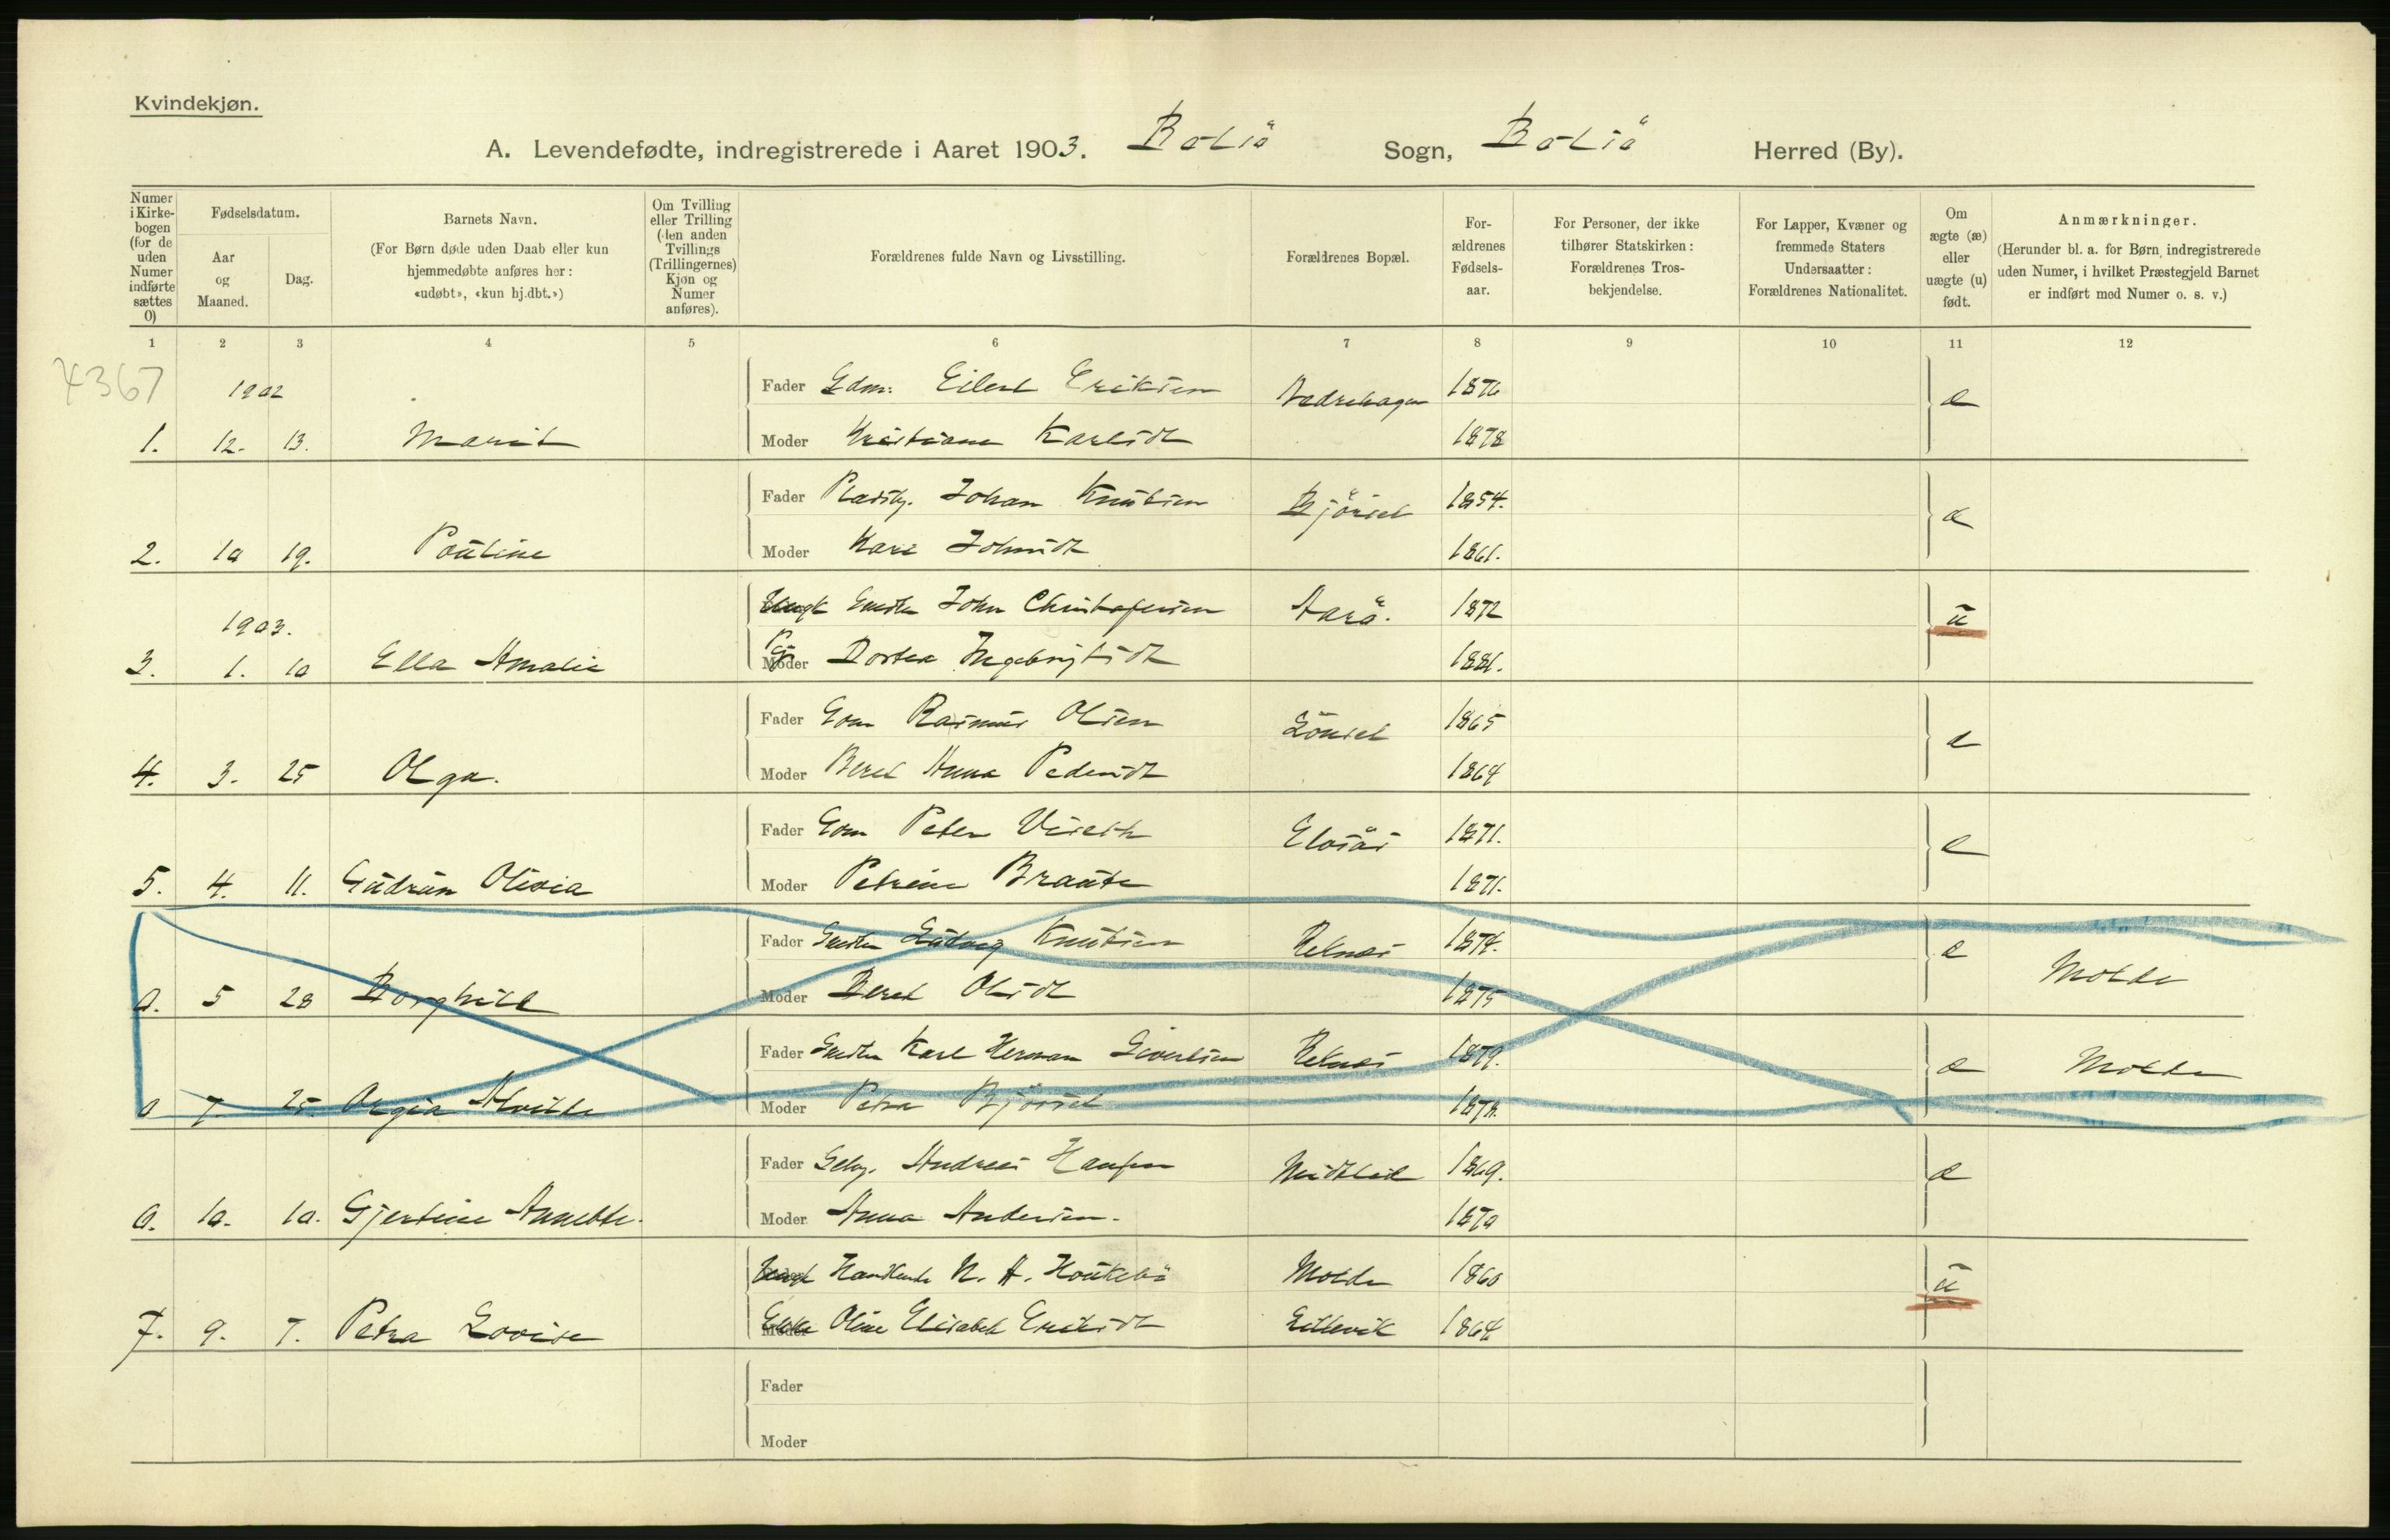 Kvindekjøn.
A. Levendefødte, indregistrerede i Aaret 1903. Bolsö Sogn, Bolsö Herred (By).
Numer i Kirkebogen (for de uden Numer indførte sættes 0)
Fødselsdatum.
Aar og Maaned.
Dag.
Barnets Navn.
(For Børn døde uden Daab eller kun hjemmedøbte anføres her: «udøbt», «kun hj.dbt.»)
Om Tvilling eller Trilling (den anden Tvillings (Trillingernes) Kjøn og Numer anføres).
Forældrenes fulde Navn og Livsstilling.
Forældrenes Bopæl.
Forældrenes Fødselsaar.
For Personer, der ikke tilhører Statskirken: Forældrenes Trosbekjendelse.
For Lapper, Kvæner og fremmede Staters Undersaatter: Forældrenes Nationalitet.
Om ægte (æ) eller uægte (u) født.
Anmærkninger.
(Herunder bl. a. for Børn indregistrerede uden Numer, i hvilket Præstegjeld Barnet er indført med Numer o. s. v.)
1 2 3 4 5 6 7 8 9 10 11 12
4367
1902
Fader Gdm. Eilert Eriksen 1876 æ
1. 12. 13. Marit Moder Kristiane Karlsdt 1878
Fader Pladsbg. Johan Knutsen Bjørset 1854. æ
2. 10 19. Pauline Moder Kari Johnsdt 1861.
1903.
John Christofersen Aarö. 1872 u
3. 1. 10 Ella Amalie Moder Dortea Ingebrigtsdt 1881.
Fader Gbm Rasmus Olsen Lönset 1865 æ
4. 3. 25 Olga. Moder Beret Anna Pedersdt 1864
Fader Gbm Peter 1871. æ
5. 4. 11. Gudrun Olivia Moder Petrine Braute 1871.
Fader Ludvig Knutsen Reknes 1874. æ Molde
0. 5 28 Borghild Moder Beret Olsdt 1875
Fader Karl Herman Sivertsen Reknes 1879. æ Molde
0 7 25. Moder Petra Bjørset 1878.
Fader Andreas Hansen 1869. æ
0. 10. 10. Gjertine Annette. Moder Anna Andersen. 1870
N. A. Molde 1860 u
7. 9. 7. Petra Lovise Moder Oline Elisabet Eriksdt 1864
Fader
Moder